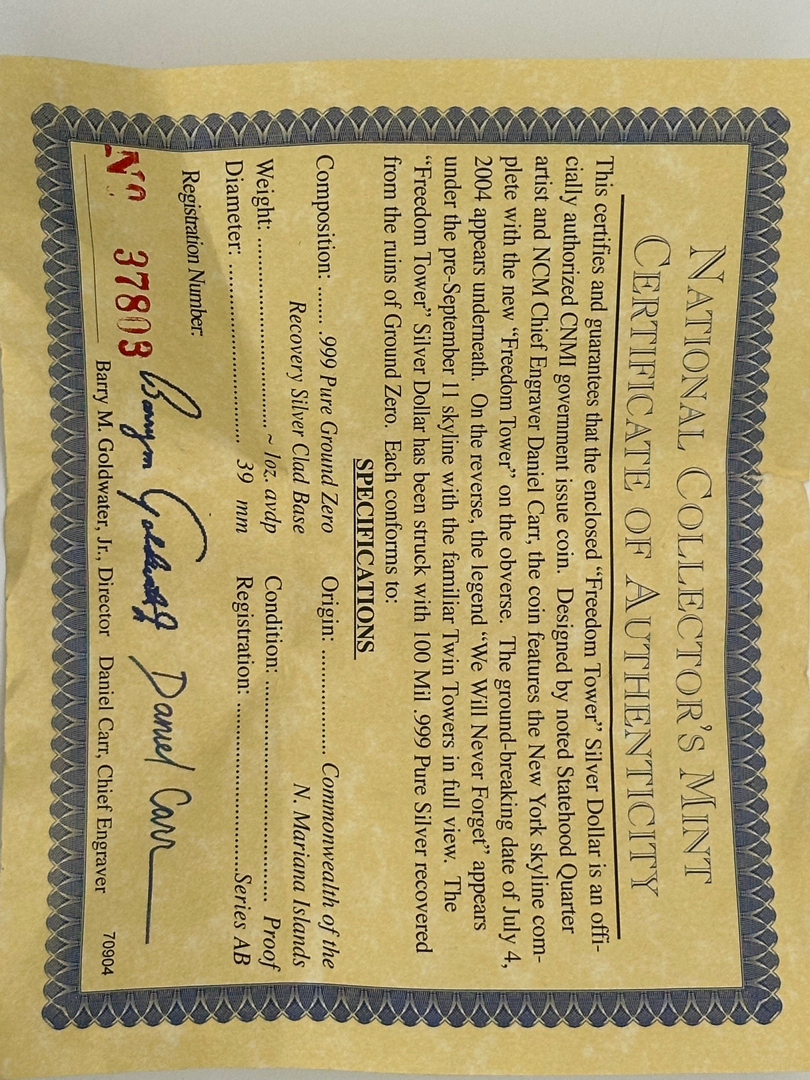 NATIONAL COLLECTOR'S MINT
CERTIFICATE OF AUTHENTICITY
This certifies and guarantees that the enclosed “Freedom Tower” Silver Dollar is an offi-
cially authorized CNMI government issue coin. Designed by noted Statehood Quarter
artist and NCM Chief Engraver, Daniel Carr, the coin features the New York skyline com-
plete with the new “Freedom Tower” on the obverse. The ground-breaking date of July 4,
2004 appears underneath. On the reverse, the legend “We Will Never Forget” appears
under the pre-September 11 skyline with the familiar Twin Towers in full view. The
“Freedom Tower” Silver Dollar has been struck with 100 Mil .999 Pure Silver recovered
from the ruins of Ground Zero. Each conforms to:
SPECIFICATIONS
Composition: ........ .999 Pure Ground Zero
Recovery Silver Clad Base
Weight: .................................. ~ 1oz. avdp
Diameter: ................................ 39 mm
Origin: .................. Commonwealth of the
N. Mariana Islands
Condition: ...................................... Proof
Registration: ............................Series AB
Registration Number:
No 37803
Barry M. Goldwater, Jr., Director
Daniel Carr
Daniel Carr, Chief Engraver
70904